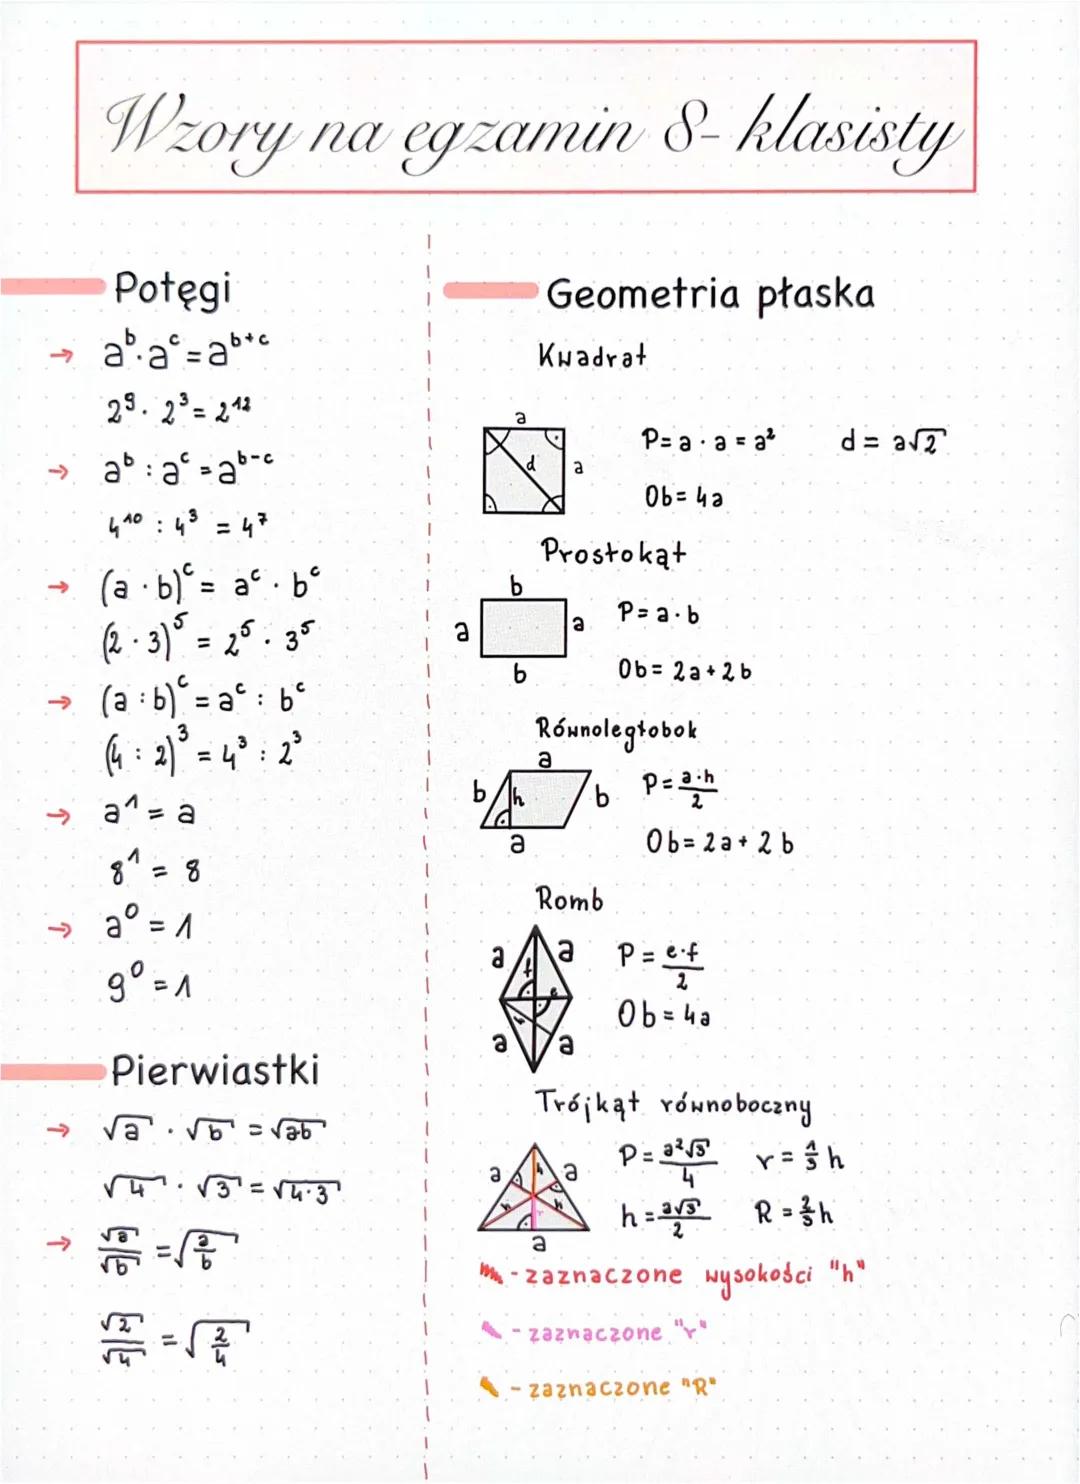 Wzory na egzamin 8-klasisty
Potęgi
→ a^b · a^c = a^(b+c)
2^9 · 2^3 = 2^12
→ a^b : a^c = a^(b-c)
4^10 : 4^3 = 4^7
→ (a · b)^c = a^c · b^c
(2 · 3)^5 = 2^5 · 3^5
→ (a : b)^c = a^c : b^c
(4 : 2)^3 = 4^3 : 2^3
→ a^1 = a
8^1 = 8
→ a^0 = 1
9^0 = 1
Pierwiastki
→ √a · √b = √ab
√4 · √3 = √4·3
→ √a/√b = √(a/b)
√2/√4 = √(2/4)
Geometria płaska
Kwadrat
a
d a
P = a · a = a² d = a√2
Ob = 4a
Prostokąt
b
a a
b
P = a · b
Ob = 2a + 2b
Równoległobok
a
b h b
a
P = a·h/2
Ob = 2a + 2b
Romb
a a
f e
a a
P = e·f/2
Ob = 4a
Trójkąt równoboczny
a h a
h r h
a
P = a²√3/4 r = 1/3 h
h = a√3/2 R = 2/3 h
- zaznaczone wysokości "h"
- zaznaczone "r"
- zaznaczone "R"